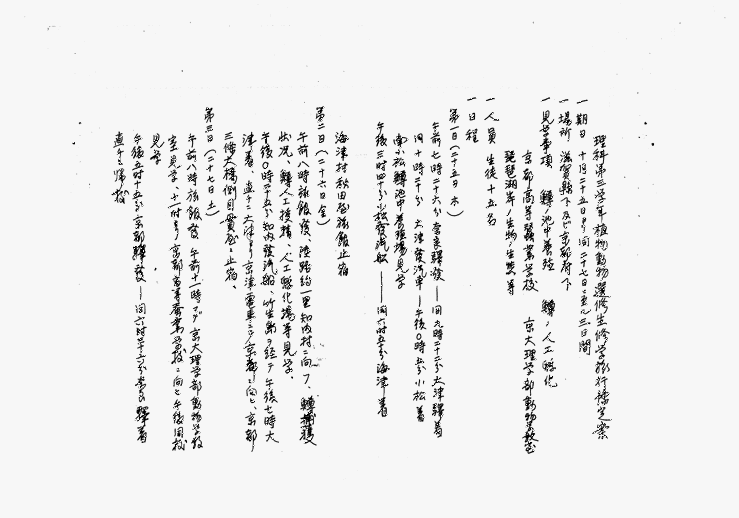 理科第三学年植物動物選修生修学旅行豫定案
一期日 十月二十五日ヨリ同二十七日ニ至ル三日間
一場所 滋賀縣下及ビ京都府下
一見学事項 鱒ノ池中養殖 鱒ノ人工孵化
京都高等蠶業学校 京大理学部動物学教室
琵琶湖岸ノ生物ノ生態等
一人員 生徒十五名
一日程
第一日(二十五日 木)
午前七時二十六分奈良驛発—同九時二十三分大津驛着
同十時二十分 大津発汽車—午後〇時五分小松着
南小松鱒池中養殖場見学
午後三時四十分小松発汽船——同六時五十分海津着
海津村秋田屋旅館止宿
第二日(二十六日 金)
午前八時旅館発、陸路約一里知内村ニ向フ、鱒捕獲
状况、鱒人工授精、人工孵化場等見学、
午後〇時二十五分知内発汽船、竹生島ヲ経テ午後七時大
津着、直チニ大津ヨリ京津電車ニテ京都ニ向ヒ、京都
三條大橋側目貫屋ニ止宿、
第三日(二十七日 土)
午前八時旅館発 午前十一時マデ京大理学部動物学教
室見学、十一時ヨリ京都高等蚕業学校ニ向ヒ午後同校
見学
午後五時十五分京都驛発—同六時二十六分奈良驛着
直チニ帰校